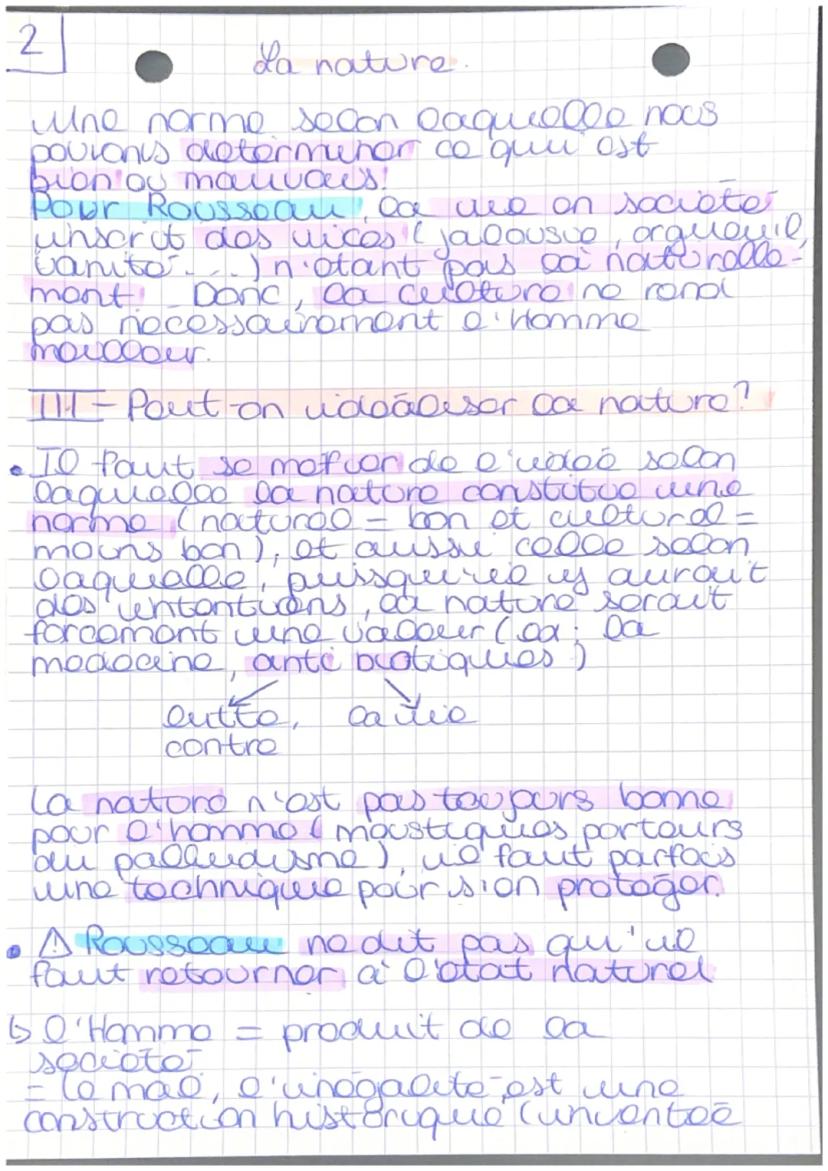 2
La nature.
Une norme selon laquelle nous
pouvons déterminer ce qui est
bien ou mauvais.
Pour Rousseau, la vie en société
inscrit des vices (jalousie, orgueuil,
vanité...) n'étant pas là naturelle-
ment. Donc, la culture ne rend
pas nécessairement l'Homme
meilleur.
III - Peut-on idéaliser la nature?
• Il faut se méfier de l'idée selon
laquelle la nature constitue une
norme (naturel = bon et culturel =
moins bon), et aussi celle selon
laquelle, puisqu'il y aurait
des intentions, la nature serait
forcément une valeur (ex: la
médecine, anti biotiques)
lutte, la vie
contre
La nature n'est pas toujours bonne
pour l'homme (moustiques porteurs
du palludisme), il faut parfois
une technique pour s'en protéger.
• ⚠ Rousseau ne dit pas qu'il
faut retourner à l'état naturel
↳ l'Homme = produit de la
société
= le mal, l'inégalité est une
construction historique (inventée